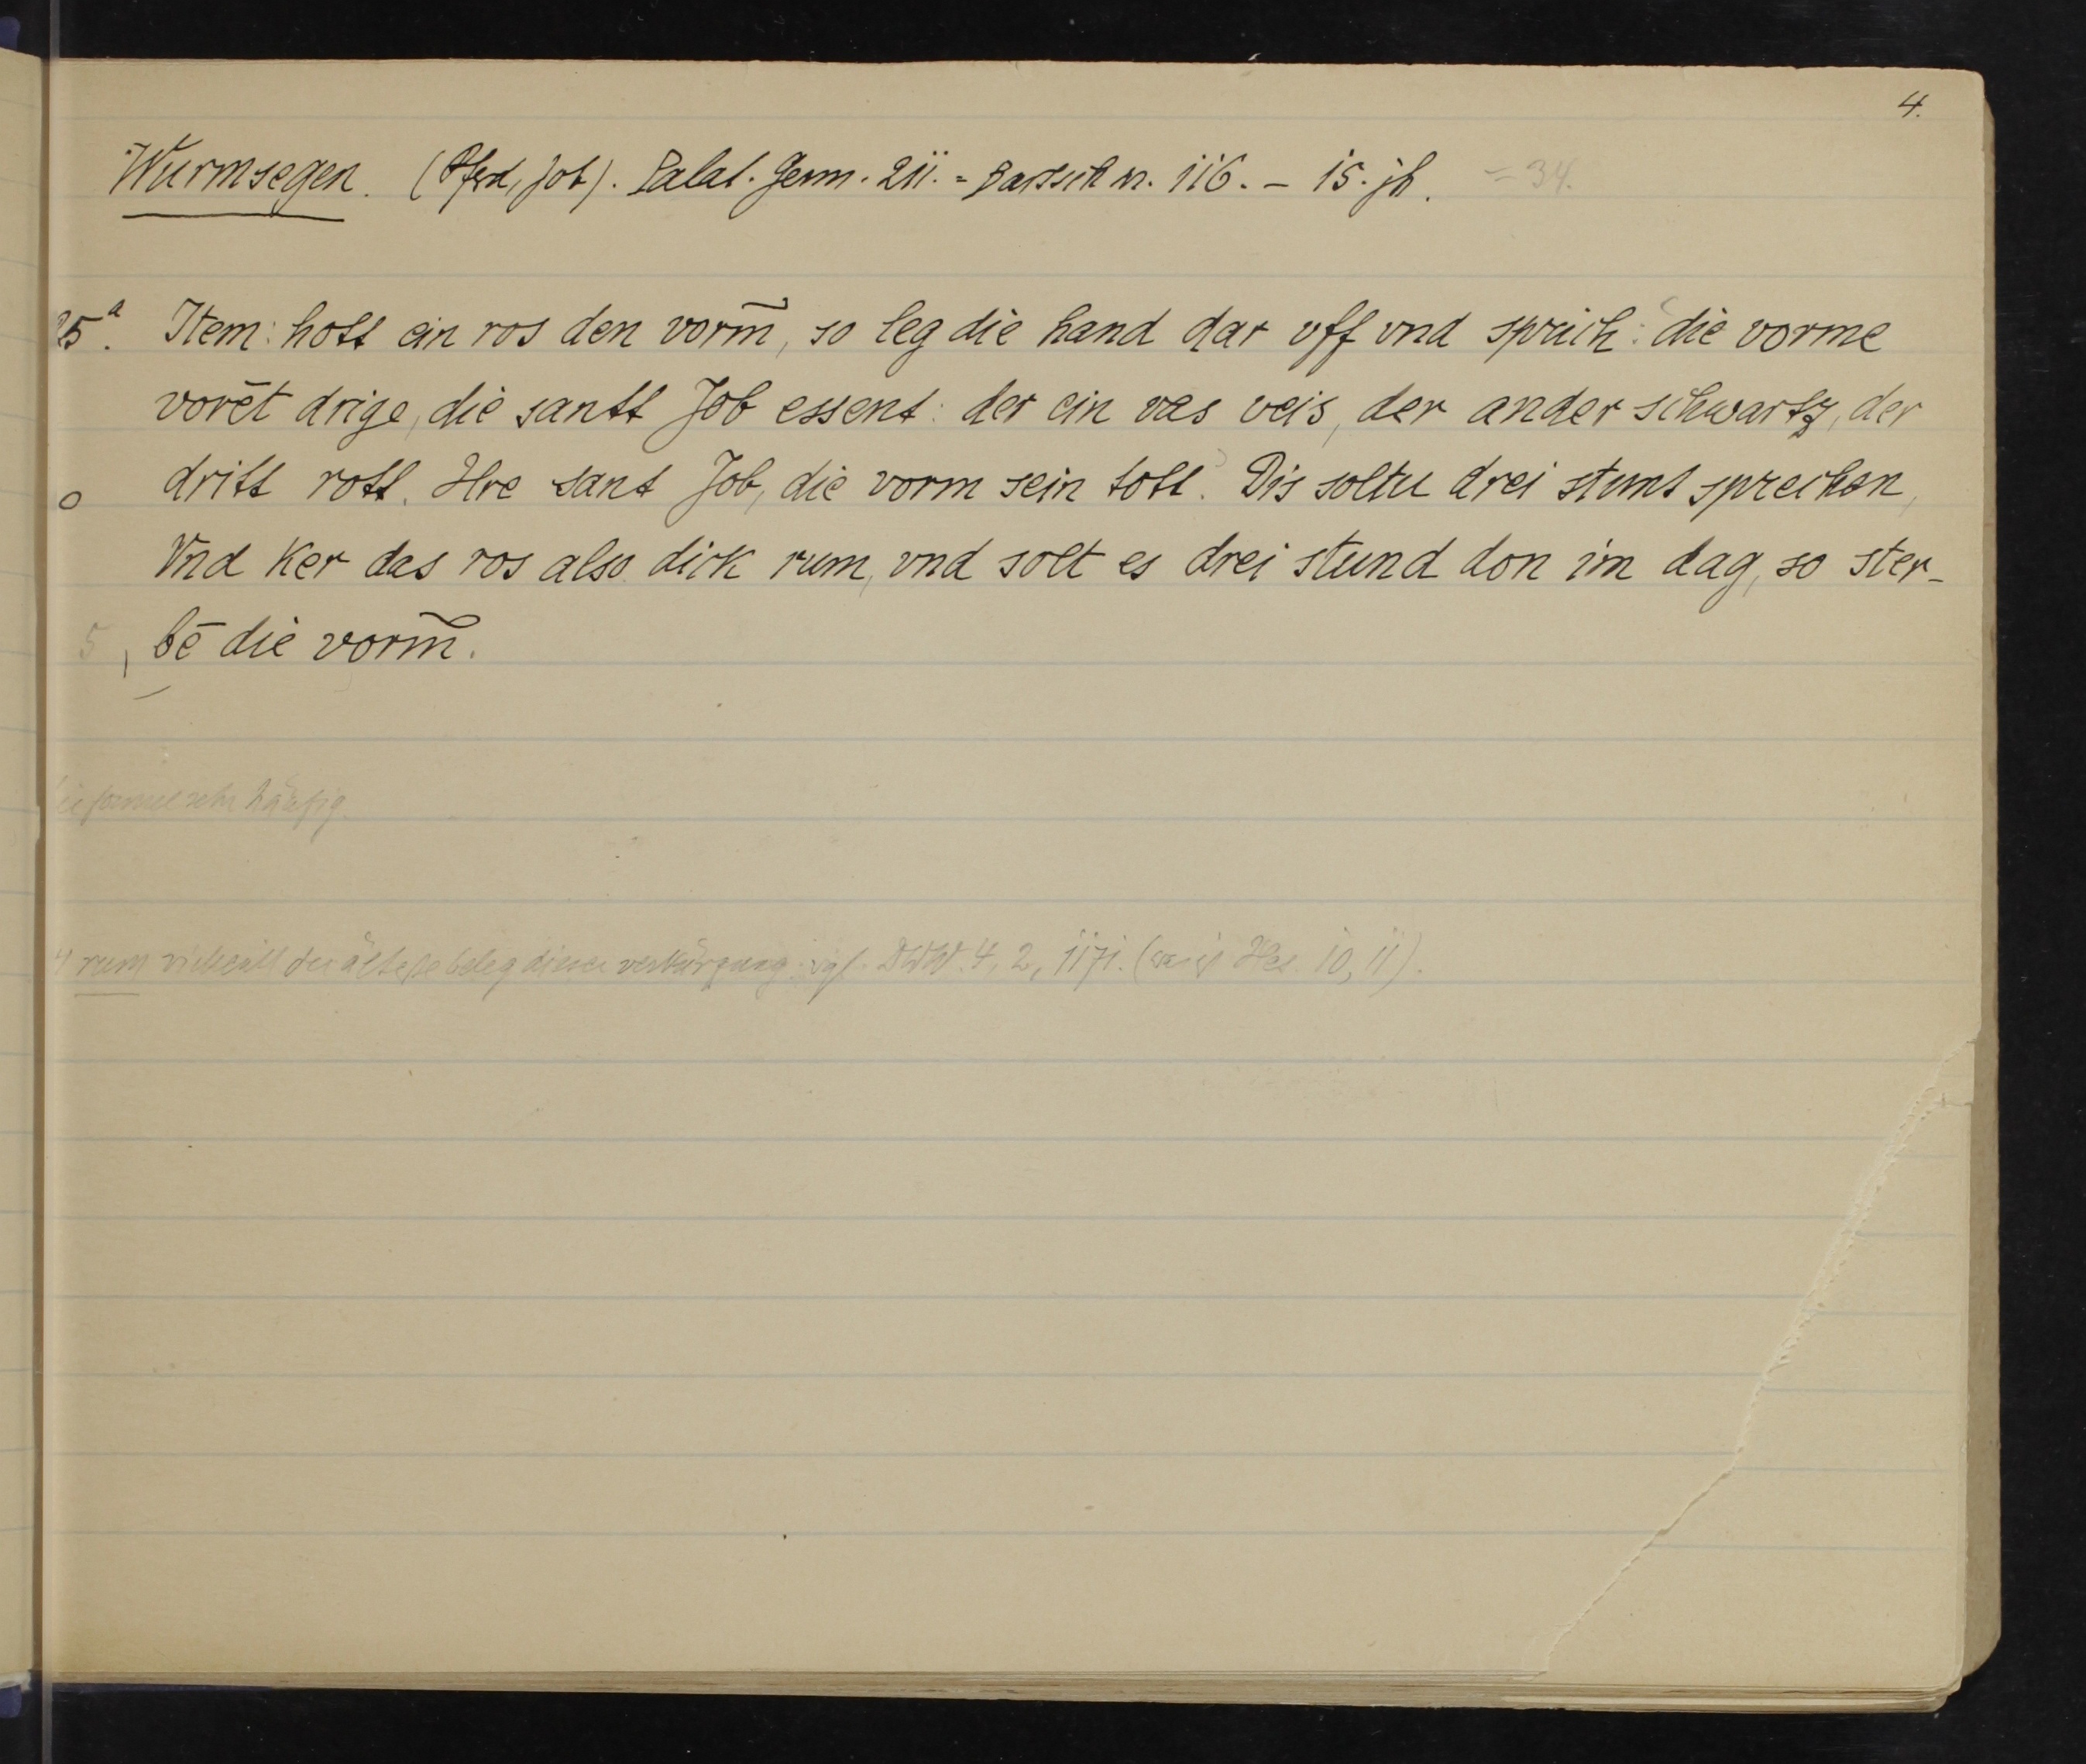 4.
Wurmsegen. (Pferd, Job). Palat. Germ. 211. = Bartsch nr. 116. – 15. jh. = 34.
25ᵃ. Item: hott ein ros den vorm̄, so leg die hand dar vff vnd sprich: die vorme
vorēt drige, die santt Job essent: der ein vas veis, der ander schwartz, der
o dritt rott. Hre sant Job, die vorm sein tott. Dis soltu drei stunt sprechen,
Vnd Ker das ros also dick rum, vnd solt es drei stund don im dag, so ster-
5, bē die vorm̄.
formel sehr häufig.
4 rum vieleicht der älteste beleg dieser verkürzung. vgl. DWW. 4, 2, 1171. ( Hes. 10, 11).